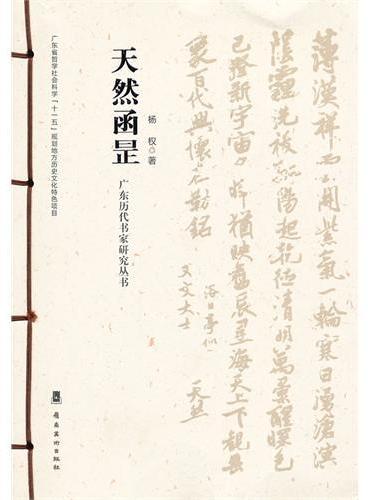 广东省哲学社会科学「十一五」规划地方历史文化特色项目
天然函昰
杨权◎著
广东历代书家研究丛书
岭南美术出版社
薄漠祥雲開紫氣一輪寒日湧滄溟
陰霾洗祓陽起乾德清明萬景醒暝色
已澄新宇宙猶映舊辰星海天上下觀無
百代興懷在勒銘
浴日亭似
又文大士
天然